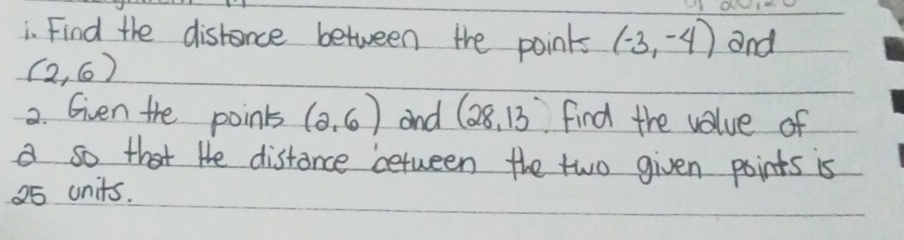 1. Find the distance between the points (-3,-4) and
(2,6)
2. Given the points (a,6) and (28,13. find the value of
a so that the distance between the two given points is
25 units.